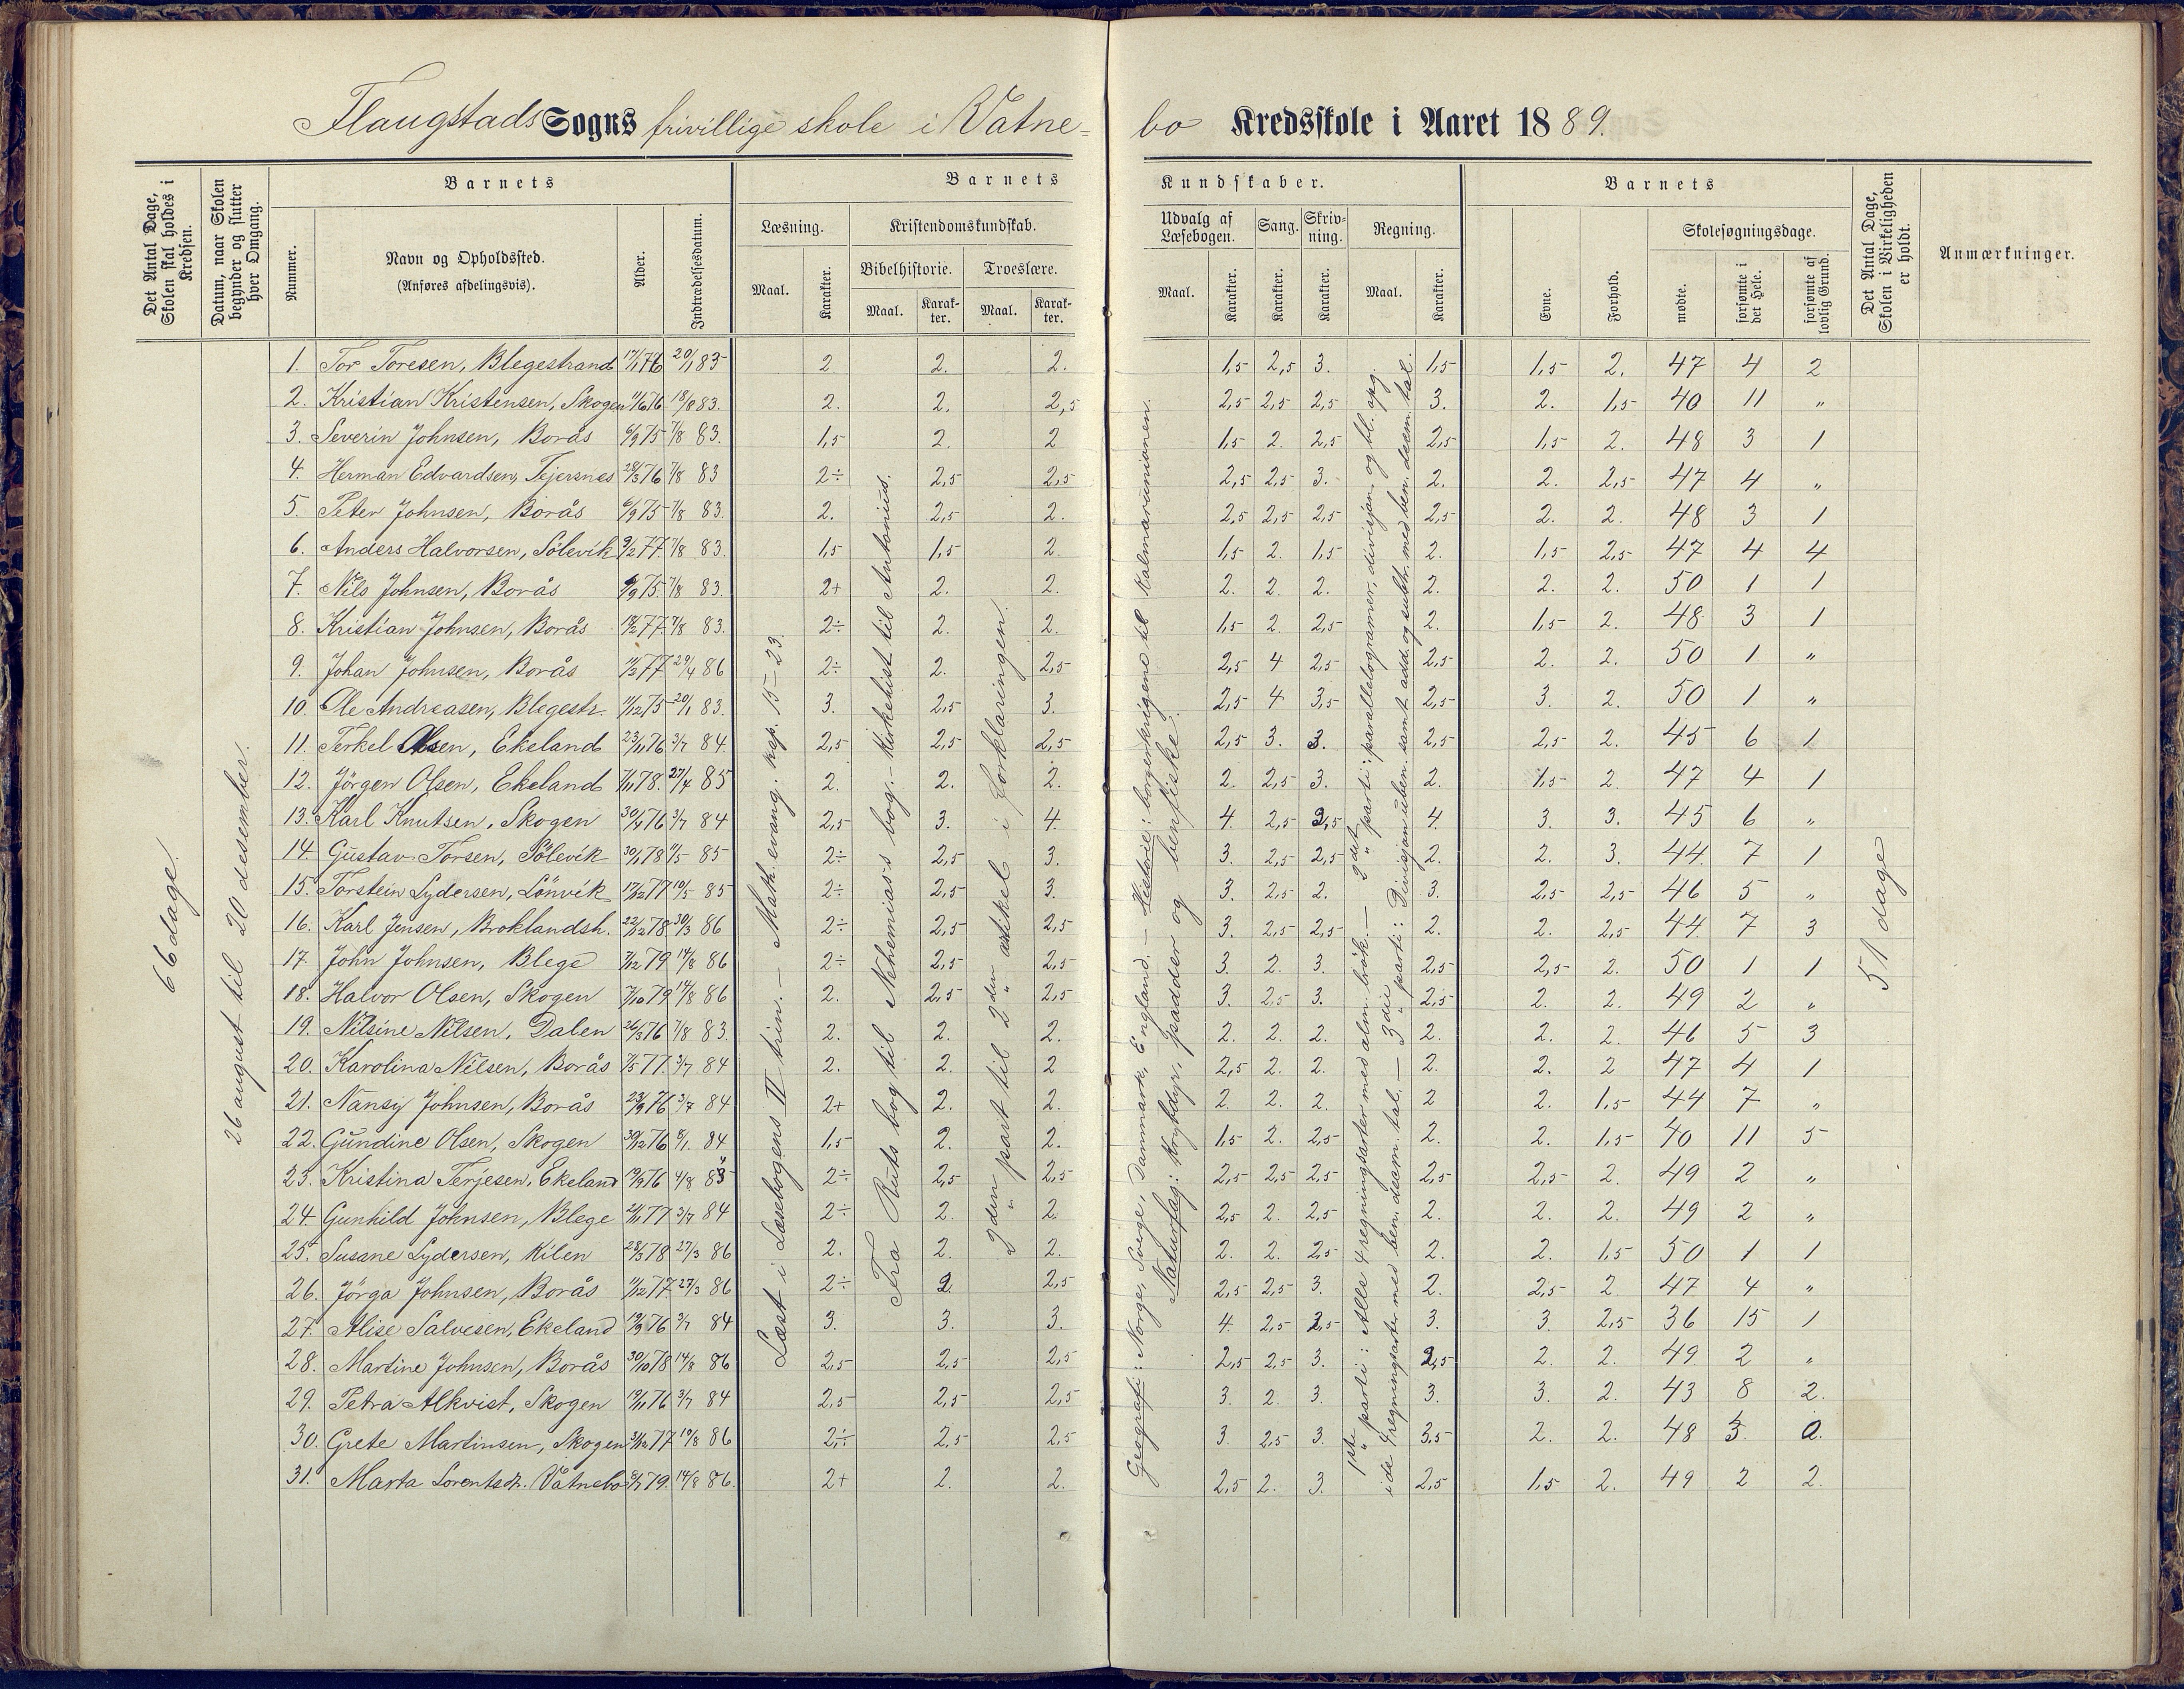 Flaugstads Sogns frivillige skole i Vatne= bo Kredsskole i Aaret 1889.
Det Antal Dage, Skolen skal holdes i Kredsen.
Datum, naar Skolen begynder og slutter hver Omgang.
Barnets
Nummer.
Navn og Opholdssted.
(Anføres afdelingsvis).
Alder.
Indtrædelsesdatum.
Barnets Kundskaber.
Læsning.
Maal.
Karakter.
Kristendomskundskab.
Bibelhistorie.
Maal.
Karakter.
Troeslære.
Maal.
Karakter.
Udvalg af Læsebogen.
Maal.
Karakter.
Sang.
Karakter.
Skrivning.
Karakter.
Regning.
Maal.
Karakter.
Barnets
Evne.
Forhold.
Skolesøgningsdage.
mødte.
forsømte i det Hele.
forsømte af lovlig Grund.
Det Antal Dage, Skolen i Virkeligheden er holdt.
Anmærkninger.
66 dage.
26 august til 20 desember.
Læst i Læsebogens II trin. — Math. evang. kap. 15-23.
Fra Ruts bog til Nehemias's bog. — Kirkehist. til Antonius.
2den part til 2den artikel i forklaringen.
Geografi: Norge, Sverge, Danmark, England. — Historie: borgerkrigene til Kalmarunionen.
Naturfag: Krybdyr, padder og benfiske.
1ste parti: Alle 4 regningsarter med alm. brøk. — 2det parti: parallelogramer, divisjon og bl. opg.
i de 4 regningsarter med ben. desm. tal. — 3die parti: Divisjon uben. samt add. og subtr. med ben. desem. tal.
51 dage
1. Tor Toresen, Blegestrand 17/1 76 20/1 83 2 2. 2. 1,5 2,5 3. 1,5 1,5 2. 47 4 2
2. Kristian Kristensen, Skogen 11/6 76 18/8 83. 2. 2. 2,5 2,5 2,5 2,5 3. 2. 1,5 40 11 "
3. Severin Johnsen, Borås 6/9 75 7/8 83. 1,5 2. 2 1,5 2. 2,5 2,5 1,5 2. 48 3 1
4. Herman Edvardsen, Tejersnes 28/3 76 7/8 83 2÷ 2,5 2,5 2,5 2,5 3. 2. 2. 2,5 47 4 "
5. Peter Johnsen, Borås 6/9 75 7/8 83. 2. 2,5 2. 2,5 2,5 2,5 2,5 2. 2. 48 3 1
6. Anders Halvorsen, Sölevik 9/2 77. 7/8 83. 1,5 1,5 2. 1,5 2. 1,5 2. 1,5 2,5 47 4 4
7. Nils Johnsen, Borås 6/9 75 7/8 83. 2+ 2. 2. 2. 2. 2. 2. 2. 2. 50 1 1
8. Kristian Johnsen, Borås 18/2 77 7/8 83. 2÷ 2. 2. 1,5 2 2,5 2. 1,5 2. 48 3 1
9. Johan Johnsen, Borås 11/2 77 29/4 86 2÷ 2. 2,5 2,5 4 2,5 2,5 2. 2. 50 1 "
10. Ole Andreasen, Blegestr. 11/12 75 20/1 83. 3. 2,5 3. 2,5 4 3,5 2,5 3. 2. 50 1 "
11. Terkel Olsen, Ekeland 23/11 76 3/7 84. 2,5 2,5 2,5 2,5 3. 3. 2,5 2,5 2. 45 6 1
12. Jörgen Olsen, Ekeland 7/11 78. 27/4 85 2. 2. 2. 2. 2,5 3. 2. 1,5 2. 47 4 1
13. Karl Knutsen, Skogen 30/4 76 3/7 84 2,5 3. 4. 4. 2,5 2,5 4. 3. 3. 45 6 "
14. Gustav Torsen, Sölevik 30/1 78 11/5 85 2÷ 2,5 3. 3. 2,5 2,5 2. 2. 3. 44. 7 1
15. Torstein Lydersen, Lönvik 17/12 77 10/5 85 2÷ 2,5 3. 3. 2,5 2. 3. 2,5 2,5 46 5 "
16. Karl Jensen, Broklandsh. 22/12 78 30/3 86 2÷ 2,5 2,5 3. 2,5 2,5 2. 2. 2,5 44. 7 3
17. John Johnsen, Blege 7/12 79 14/8 86 2÷ 2,5 2,5 3. 2. 3. 2,5 2,5 2. 50 1 1
18. Halvor Olsen, Skogen 7/10 79 14/8 86 2. 2,5 2,5 3. 2,5 3. 2,5 2. 2. 49 2 "
19. Nilsine Nilsen, Dalen 26/3 76 7/8 83. 2. 2. 2. 2. 2. 2. 2. 2. 2. 46 5 3
20. Karolina Nilsen, Borås 7/5 77. 3/7 84 2. 2. 2 2,5 2. 2. 2. 2. 2 47 4 1
21. Nansy Johnsen, Borås 23/9 76 3/7 84 2+ 2. 2. 2. 2. 2. 2 2. 1,5 44 7 "
22. Gundine Olsen, Skogen 30/12 76 8/1. 84 1,5 2. 2. 1,5 2. 2,5 2. 2. 1,5 40 11 5
23. Kristina Terjesen, Ekeland 19/9 76 4/8 85 2÷ 2,5 2,5 2,5 2,5 2,5 2,5 2,5 2. 49 2 "
24. Gunhild Johnsen, Blege 21/1 77 3/7 84 2÷ 2. 2. 2,5 2. 2,5 2. 2. 2. 49 2 "
25. Susane Lydersen, Kilen 28/3 78 27/3 86 2. 2. 2. 2. 2. 2,5 2. 2. 1,5 50 1 1
26. Jörga Johnsen, Borås 11/12 77 27/3 86 2÷ 2. 2,5 2,5 2,5 3. 2. 2,5 2. 47 4 "
27. Alise Salvesen, Ekeland 19/9 76 3/7 84 3. 3. 3. 4. 2,5 2,5 3. 3. 2,5 36 15 1
28. Martine Johnsen, Borås 30/10 78 14/8 86 2,5 2,5 2,5 2,5 2,5 3. 2,5 2. 2. 49. 2 "
29. Petra Alkvist, Skogen 19/11 76 3/7 84 2,5 2,5 2,5 3. 2. 3. 3. 3. 2. 43 8 2.
30. Grete Martinsen, Skogen 31/12 77 19/8 86 2÷ 2,5 2,5 3. 2,5 3. 3,5 2. 2. 48 3. 0.
31. Marta Lorentsdr. Våtnebo 8/7 79. 14/8 86. 2+ 2. 2. 2,5 2. 3. 2,5 1,5 2. 49 2 2.